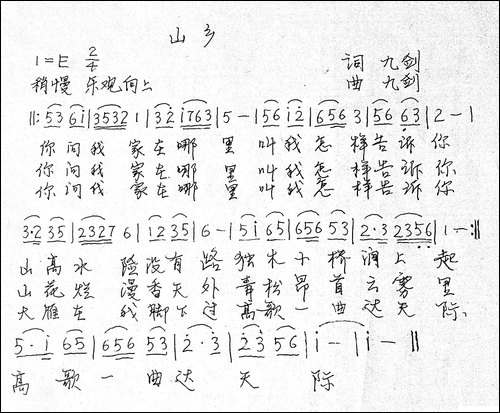 山乡
1=E 2/4
词 九剑
稍慢 乐观向上
曲 九剑
‖: 53 6i | 3532 1 | 32 i763 | 5 - | 56 i2 | 656 3 | 56 63 | 2 - |
你问我 家在哪 里 叫我怎 样告诉你
你问我 家在哪 里 叫我怎 样告诉你
你问我 家在哪 里 叫我怎 样告诉你
3·2 35 | 2327 6 | 12 35 | 6 - | 5i 65 | 656 53 | 2·3 2356 | 1 - :‖
山高水 险没有 路 独木小 桥涧上 起
山花烂 漫香天 外 青松昂 首云雾 里
大雁在 我脚下 过 高歌一 曲达天 际
5·i 65 | 656 53 | 2·3 | 23 56 | i - | i - ‖
高歌一曲达 天 际